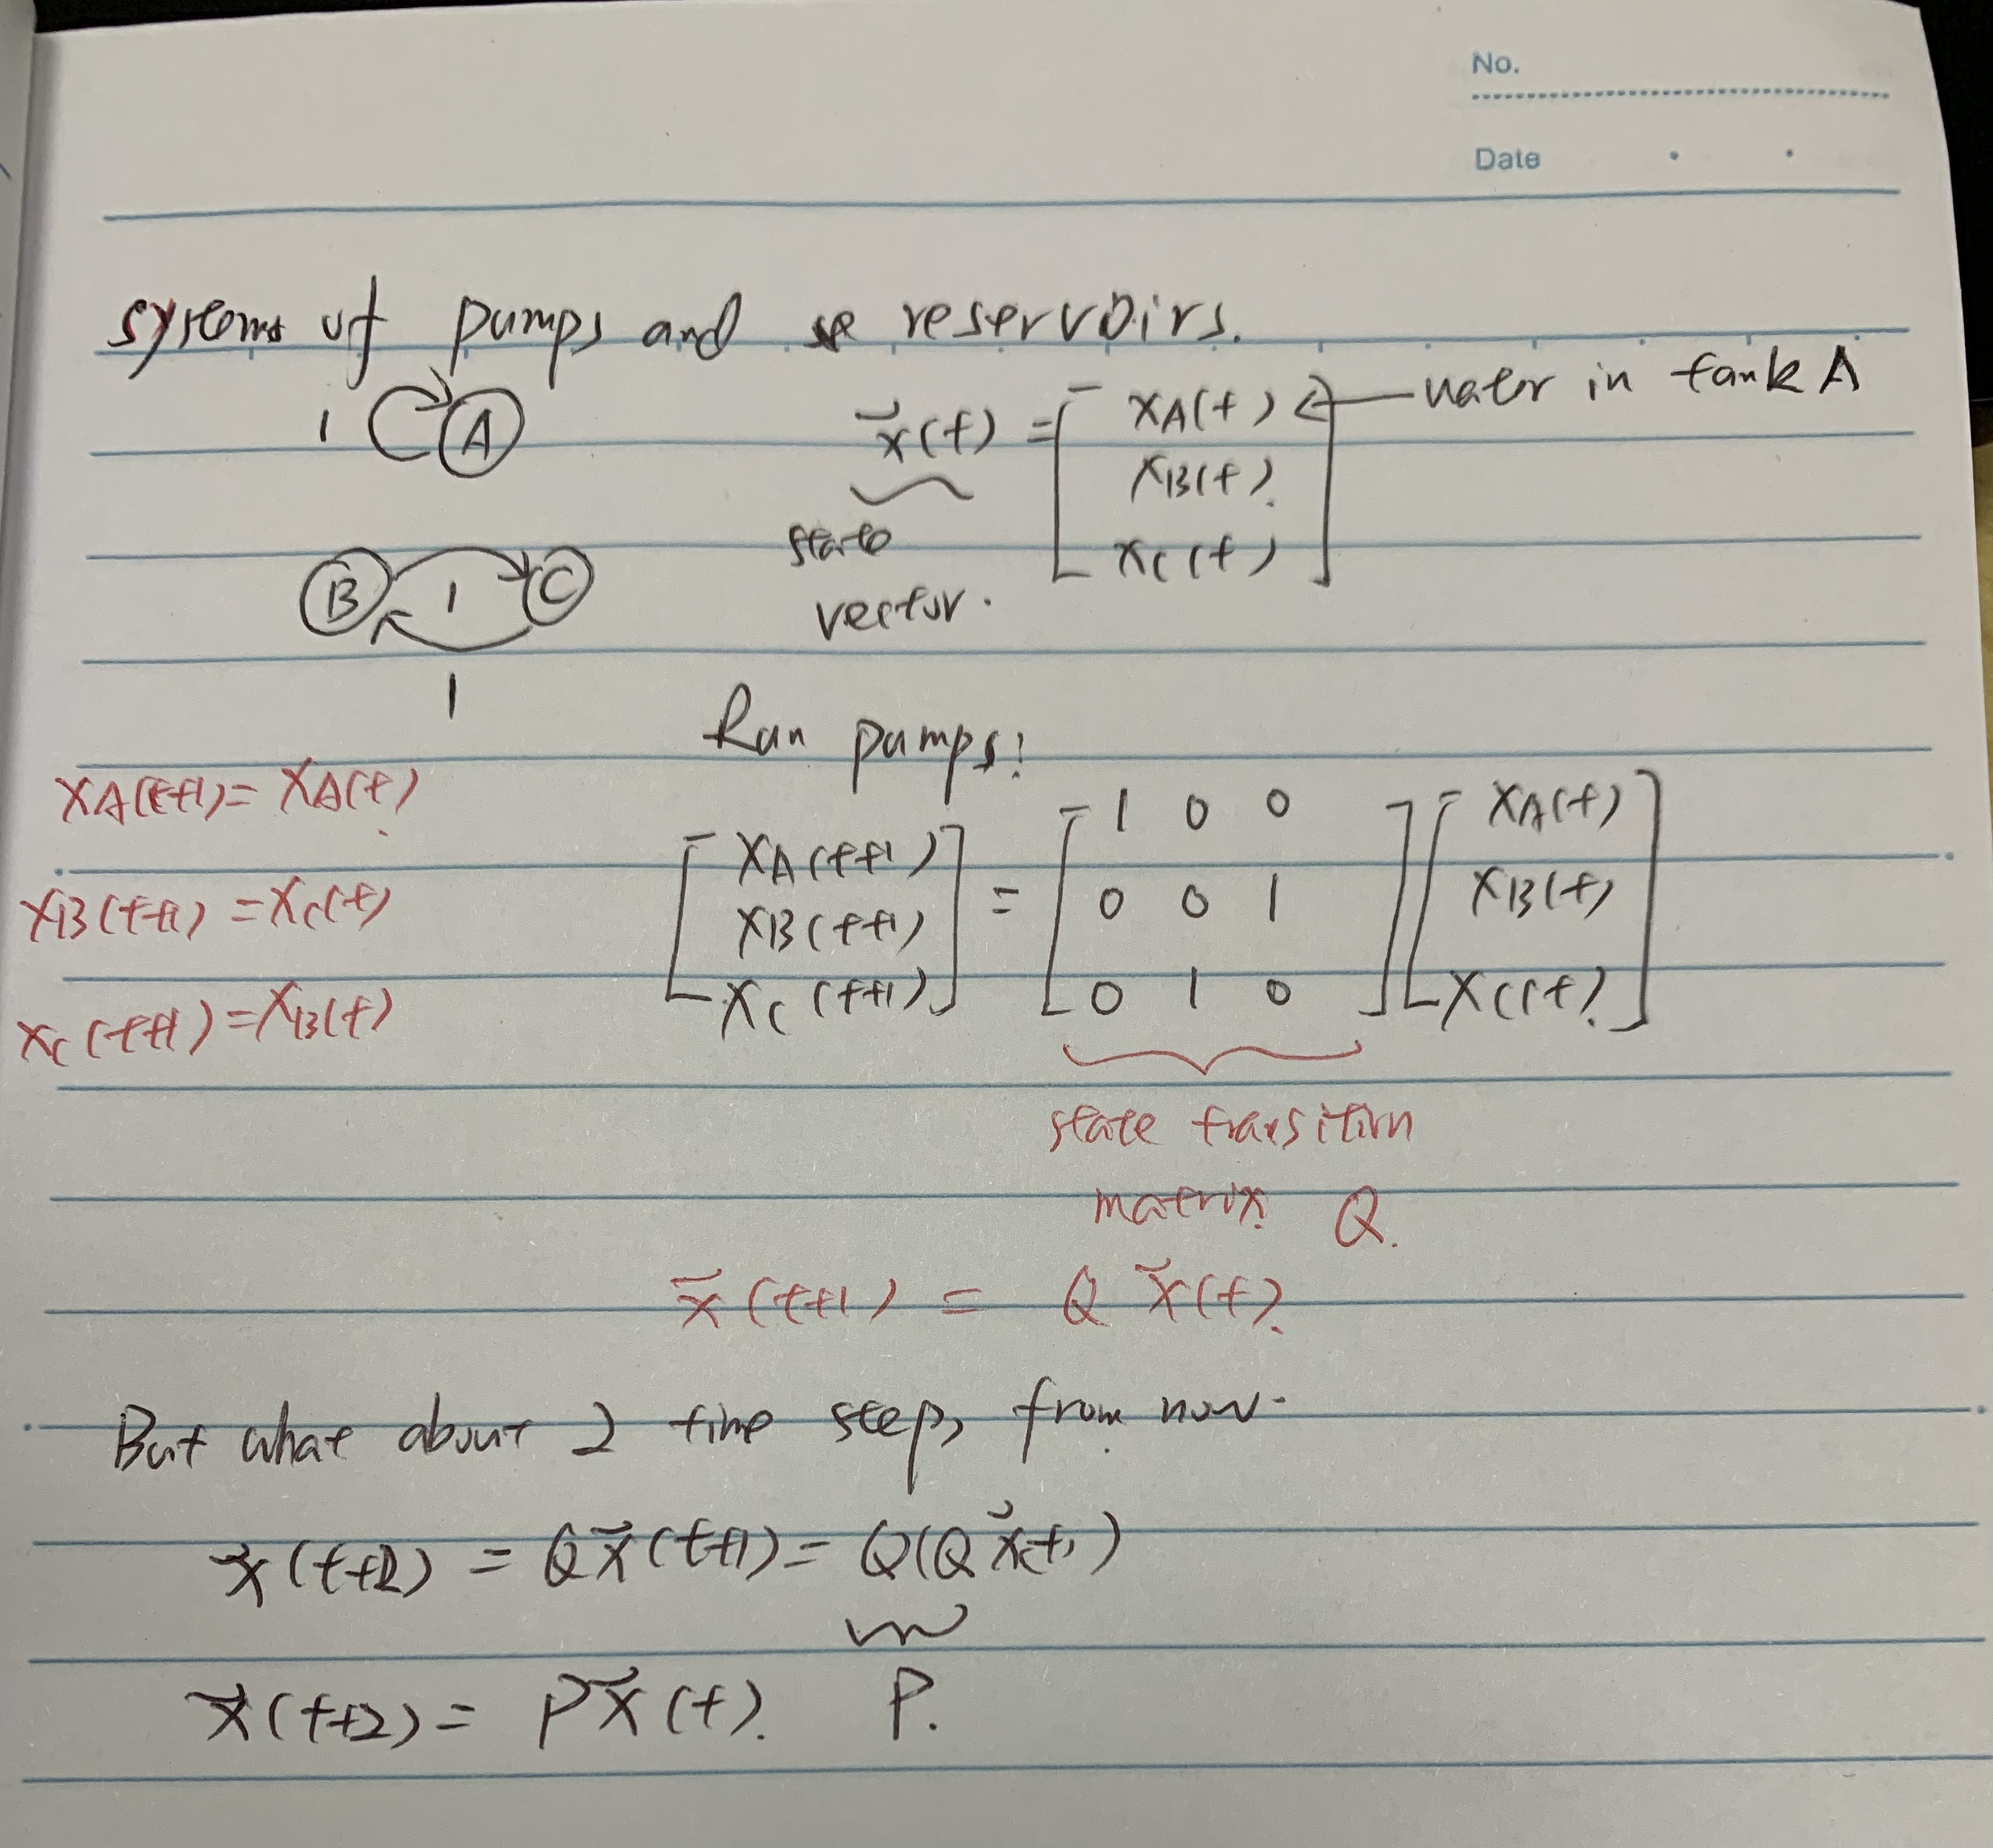 No.
Date
systems of pumps and reservoirs.
1 A
x⃗(t) = [ xA(t) ← water in tank A
xB(t)
xC(t) ]
state
vector.
B 1 C
1
Run pumps!
xA(t+1) = xA(t)
xB(t+1) = xC(t)
xC(t+1) = xB(t)
[ xA(t+1) ] = [ 1 0 0 ] [ xA(t) ]
[ xB(t+1) ] [ 0 0 1 ] [ xB(t) ]
[ xC(t+1) ] [ 0 1 0 ] [ xC(t) ]
state transition
matrix Q.
x⃗(t+1) = Q x⃗(t).
But what about 2 time steps from now.
x⃗(t+2) = Q x⃗(t+1) = Q(Q x⃗(t))
x⃗(t+2) = P x⃗(t). P.